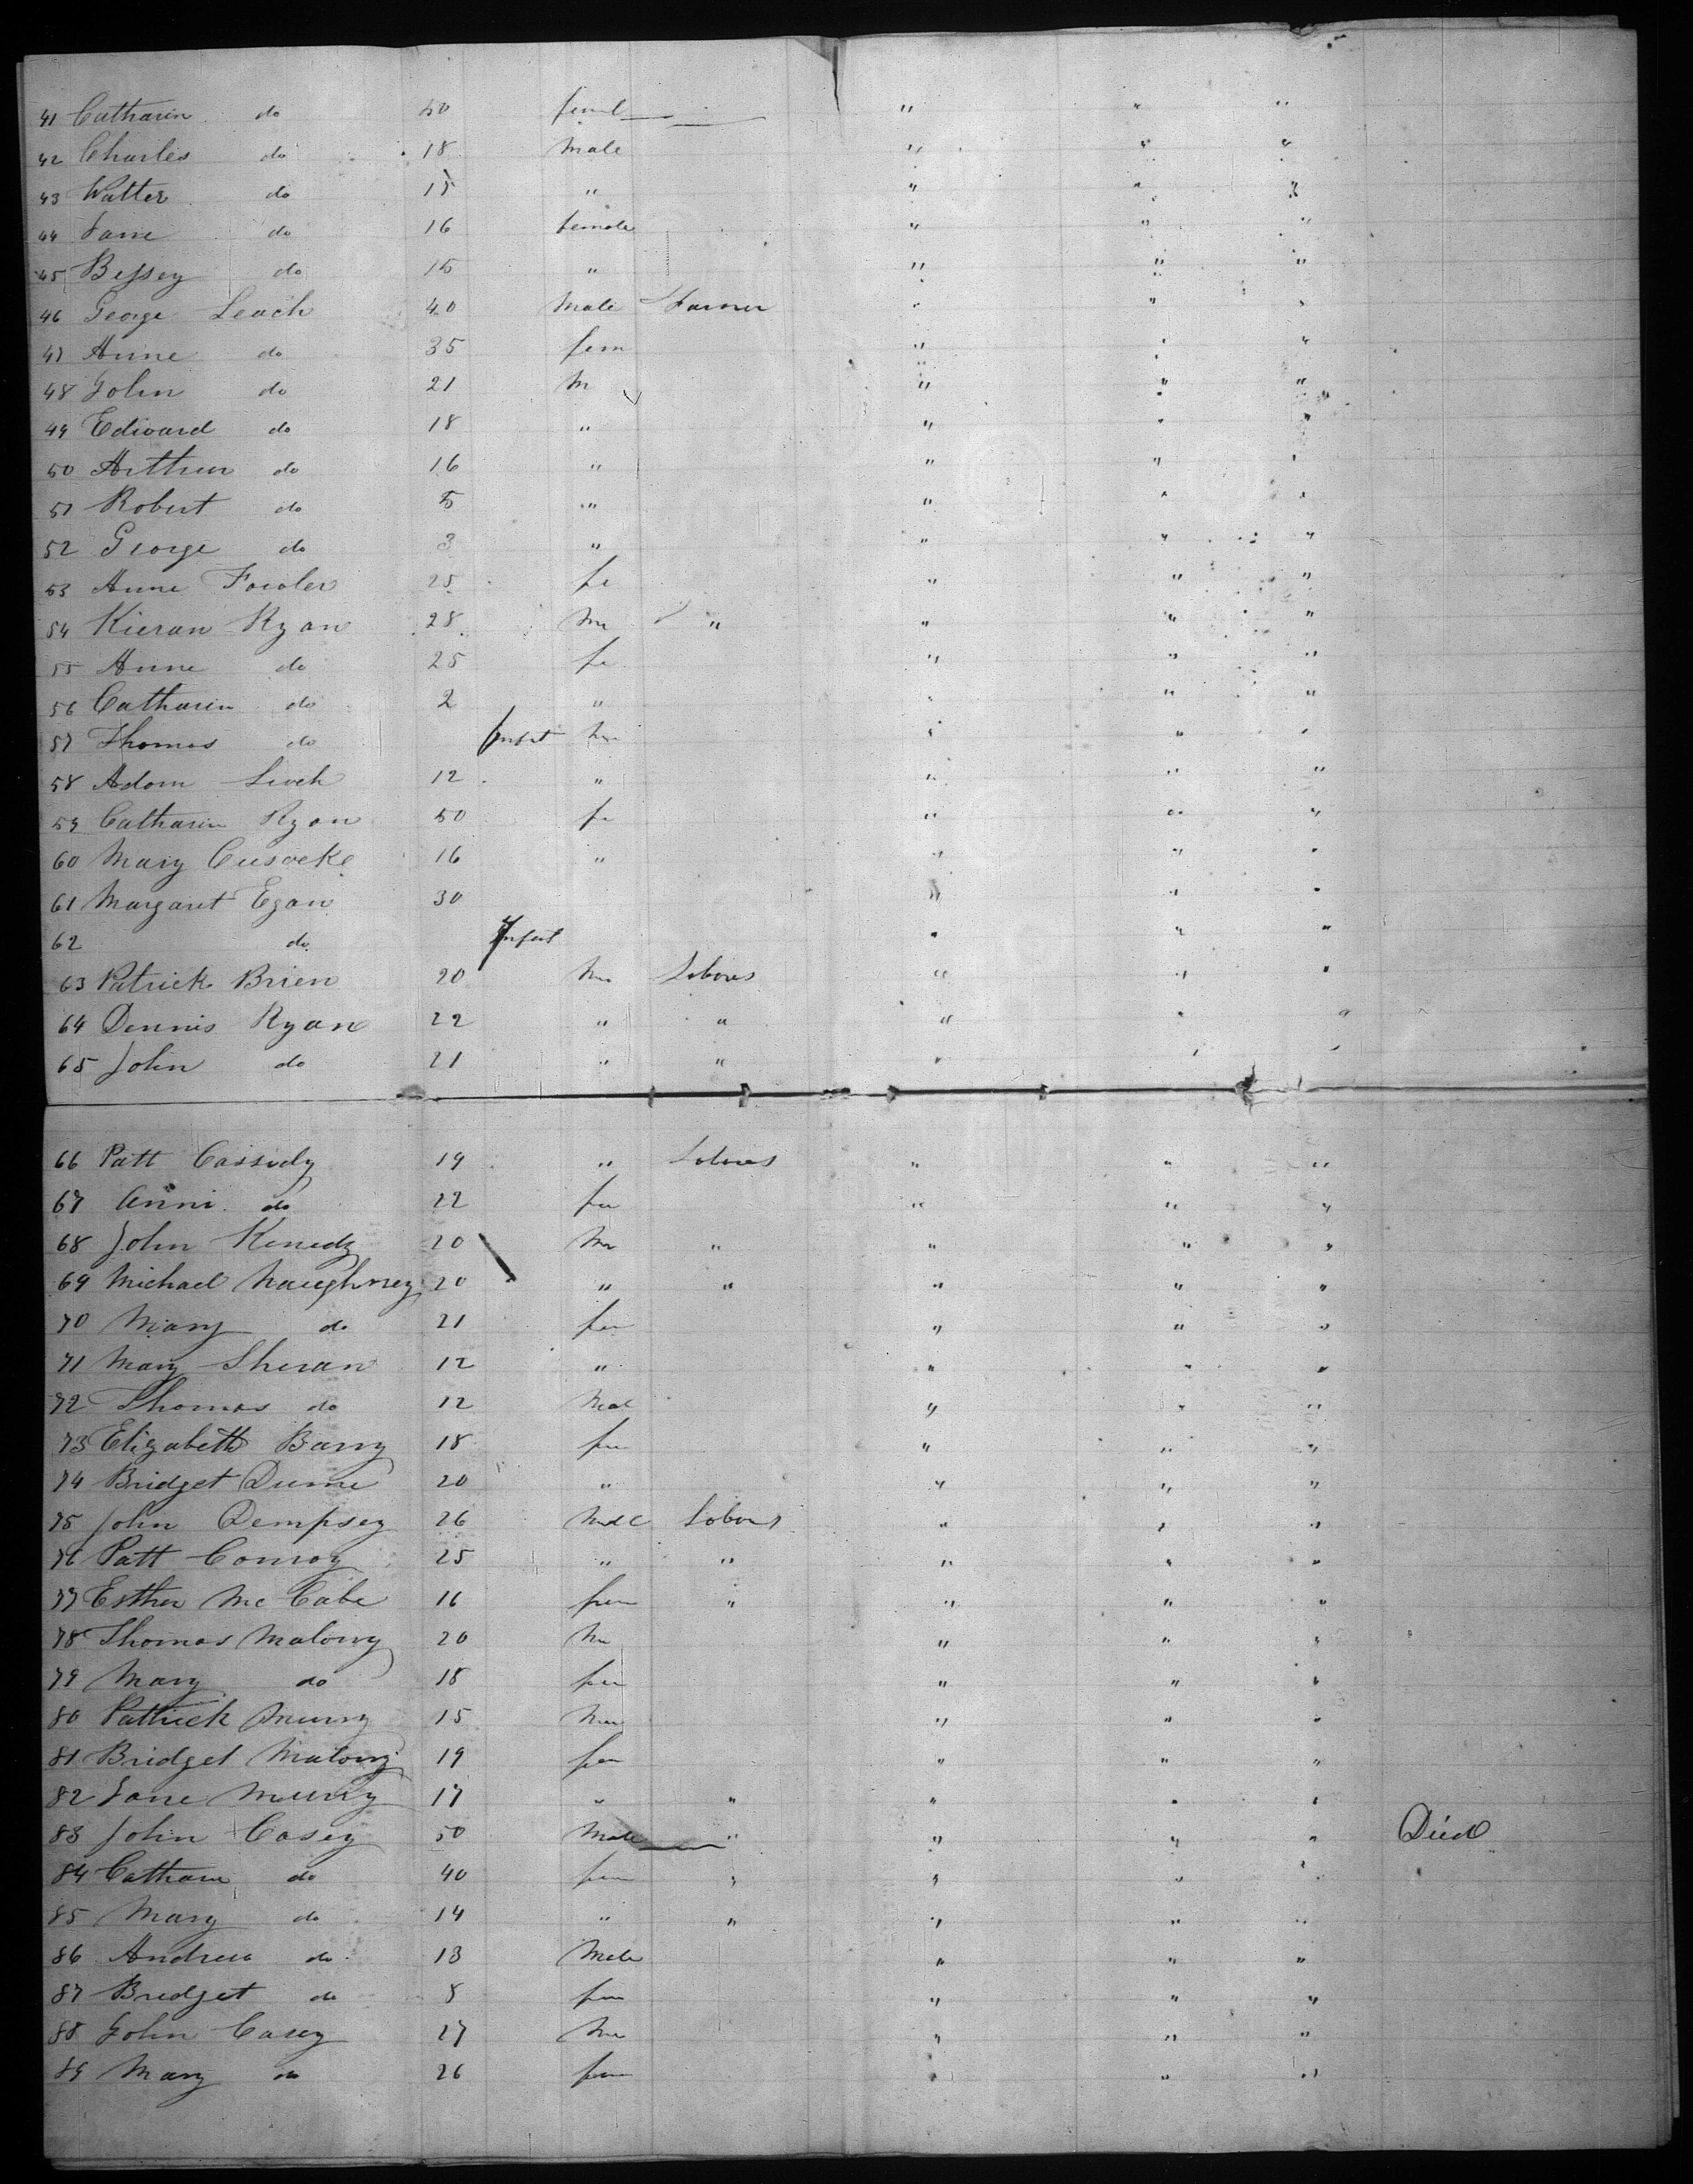 41 Catharin do 50 femal " " "
42 Charles do 18 Male " " "
43 Walter do 17 " " " "
44 Jane do 16 female " " "
45 Bessey do 15 " " " "
46 George Leach 40 Male Farmer " " "
47 Anne do 35 fem " " "
48 John do 21 M " " "
49 Edward do 18 " " " "
50 Arthur do 16 " " " "
51 Robert do 5 " " " "
52 George do 3 " " " "
53 Anne Fowler 25 fe " " "
54 Kieran Ryan 28 Ma " " " "
55 Anne do 25 fe " " "
56 Catharin do 2 " " " "
57 Thomas do Infat Ma " " "
58 Adam Leech 12 " " " "
59 Catharin Ryan 50 fe " " "
60 Mary Cusocke 16 " " " "
61 Margaret Egan 30 " " "
62 do Infant " " "
63 Patrick Brien 20 Ma Labores " " "
64 Dennis Ryan 22 " " " " "
65 John do 21 " " " " "
66 Patt Cassidy 19 " Labores " " "
67 Anni do 22 fem " " "
68 John Kenedy 20 Ma " " " "
69 Michael Naughney 20 " " " " "
70 Mary do 21 fem " " "
71 Mary Sheran 12 " " " "
72 Thomas do 12 Mal " " "
73 Elizabeth Barry 18 fem " " "
74 Bridget Dunne 20 " " " "
75 John Dempsey 26 Male Labour " " "
76 Patt Conroy 25 " " " " "
77 Esther McCabe 16 fem " " " "
78 Thomas Malony 20 Ma " " "
79 Mary do 18 fem " " "
80 Pattrick Murry 15 Ma " " "
81 Bridget Malony 19 fem " " "
82 Jane Murry 17 " " " " "
83 John Casey 50 Male " " " " Died
84 Catharn do 40 fem " " " "
85 Mary do 14 " " " " "
86 Andrew do 13 Male " " "
87 Bredget do 8 fem " " "
88 John Casey 27 Ma " " "
89 Mary do 26 fem " " "